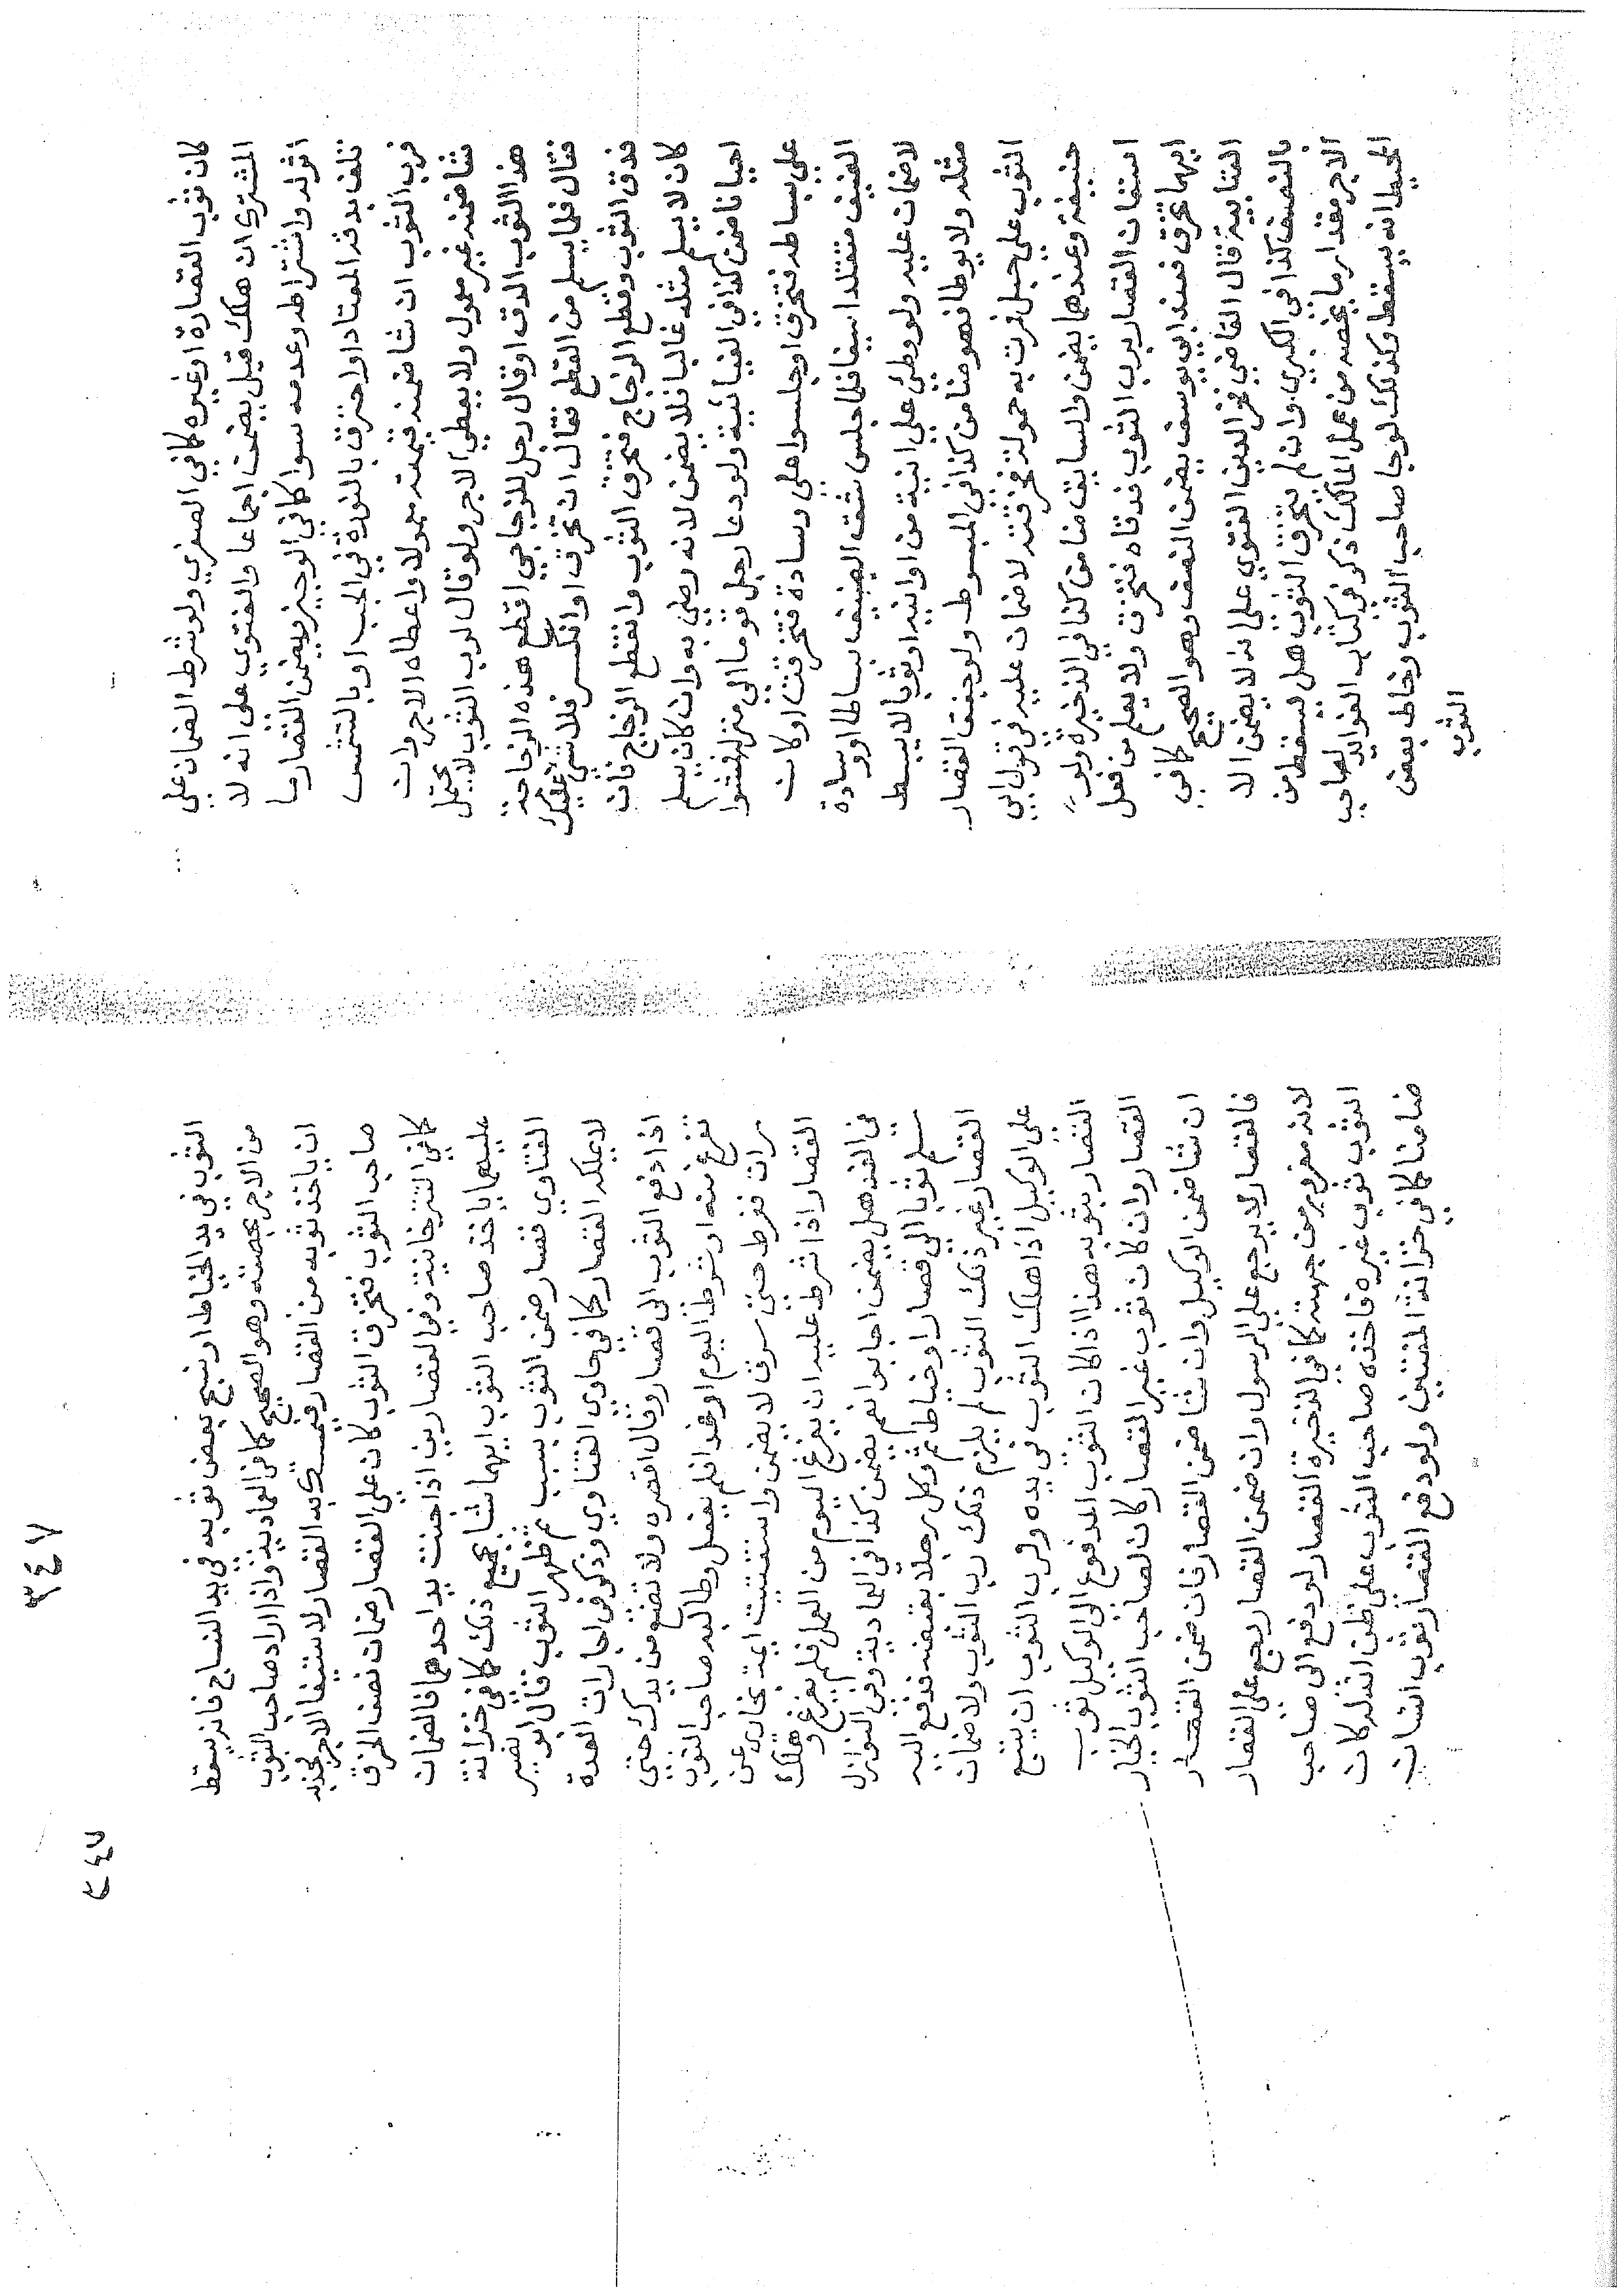 كان ثوب القصارة او غيره كما في الصغري ولو شرط الضمان علي
المشترك ان هلك قيل يضمن اجماعا والفتوي على انه لا
اثر له واشتراطه وعدمه سوا كما في الوجيز ويضمن القصار ما
تلف بدقه المعتاد او احترق بالنورة في الحب او بالتشميس
فرب الثوب ان شا ضمنه قيمته معمولا واعطاه الاجر وان
شا ضمنه غير معمول ولا يعطي الاجر ولو قال لرب الثوب لا يحتمل
هذا الثوب الدق او قال رجل للزجاجي اقطع هذه الزجاجة
فقال فلما يسلم من القطع فقال ان تخرق او انكسر فلا شي عليك
فدق الثوب وقطع الزجاج فتخرق الثوب وانقطع الزجاج فان
كان لا يسلم مثله غالبا فلا يضمن لانه رضي به وان كان يسلم
احيانا ضمن كذا في الغياثية ولو دعا رجل قوما الى منزله فمشوا
على بساطه فتخرق او جلسوا على وسادة فتخرقت او كان
الضيف متقلدا سيفا فلما جلس شق السيف بساطا او وسادة
لا ضمان عليه ولو وطئ على انية من اوانيه او ثوبا لا يبسط
مثله ولا يوطا فهو ضامن كذا في المبسوط ولو جفف القصار
الثوب علي حبل فمرت به حمولة فخرقته لا ضمان عليه في قول ابي
حنيفة وعندهما يضمن والسايق ضامن كذا في الذخيرة ولو
استعان القصار برب الثوب فدقاه فتخرق ولا يعلم من فعل
ايهما تخرق فعند ابي يوسف يضمن النصف وهو الصحيح كما في
العتابية قال القاضي فخر الدين الفتوي على انه لا يضمن الا
بالنصف كذا في الكبري وان لم يتخرق الثوب هل يسقط من
الاجر مقدار ما يخصه من عمل المالك ذكر في كتاب الفوايد لصاحب
المحيط انه يسقط وكذلك لو جا صاحب الثوب وخاط بعض
الثوب
٣٤٧
٢٤٧
الثوب في يد الخياط او نسج بعض ثوبه في يد النساج فانه يسقط
من الاجر بحصته وهو الصحيح كما في العمادية واذا اراد صاحب الثوب
ان ياخذ ثوبه من القصار فتمسك به القصار لاستيفا الاجر فجذبه
صاحب الثوب فتخرق الثوب كان على القصار ضمان نصف الخرق
كما في التترخانية وفي القصارين اذا جنت يد احدهما فالضمان
عليهما ياخذ صاحب الثوب ايهما شا بجميع ذلك كما في خزانة
الفتاوي قصار ضمن الثوب بسبب ثم ظهر الثوب قال ابو نصير
لا يملكه القصار كما في حاوي الفتاوي وذكر في اجارات العدة
اذا دفع الثوب الى قصار وقال اقصره ولا تضع من يدك حتى
تفرغ منه او شرط اليوم او غدا فلم يفعل وطالبه صاحب الثوب
مرات ففرط حتى سرق لا يضمن واستفتيت ايمة بخارى عن
القصار اذا شرط عليه ان يفرغ اليوم من العمل فلم يفرغ وهلك
في الغد هل يضمن اجابوا نعم يضمن كذا في العمادية وفي النوازل
سلم ثوبا الى قصار او خياط ثم وكل رجلا بقبضه فدفع اليه
القصار غير ذلك الثوب لم يلزم ذلك رب الثوب ولا ضمان
على الوكيل اذا هلك الثوب في يده ولرب الثوب ان يتبع
القصار بثوبه هذا اذا كان الثوب المدفوع الى الوكيل ثوب
القصار وان كان ثوب غير القصار كان لصاحب الثوب الخيار
ان شا ضمن الوكيل وان شا ضمن القصار فان ضمن القصار
فالقصار لا يرجع على الرسول وان ضمن القصار يرجع على القصار
لانه مغرور من جهته كما في الذخيرة القصار لو دفع الى صاحب
الثوب ثوب غيره فاخذه صاحب الثوب على ظن انه له كان
ضامنا كما في خزانة المفتين ولو دفع القصار ثوب انسان